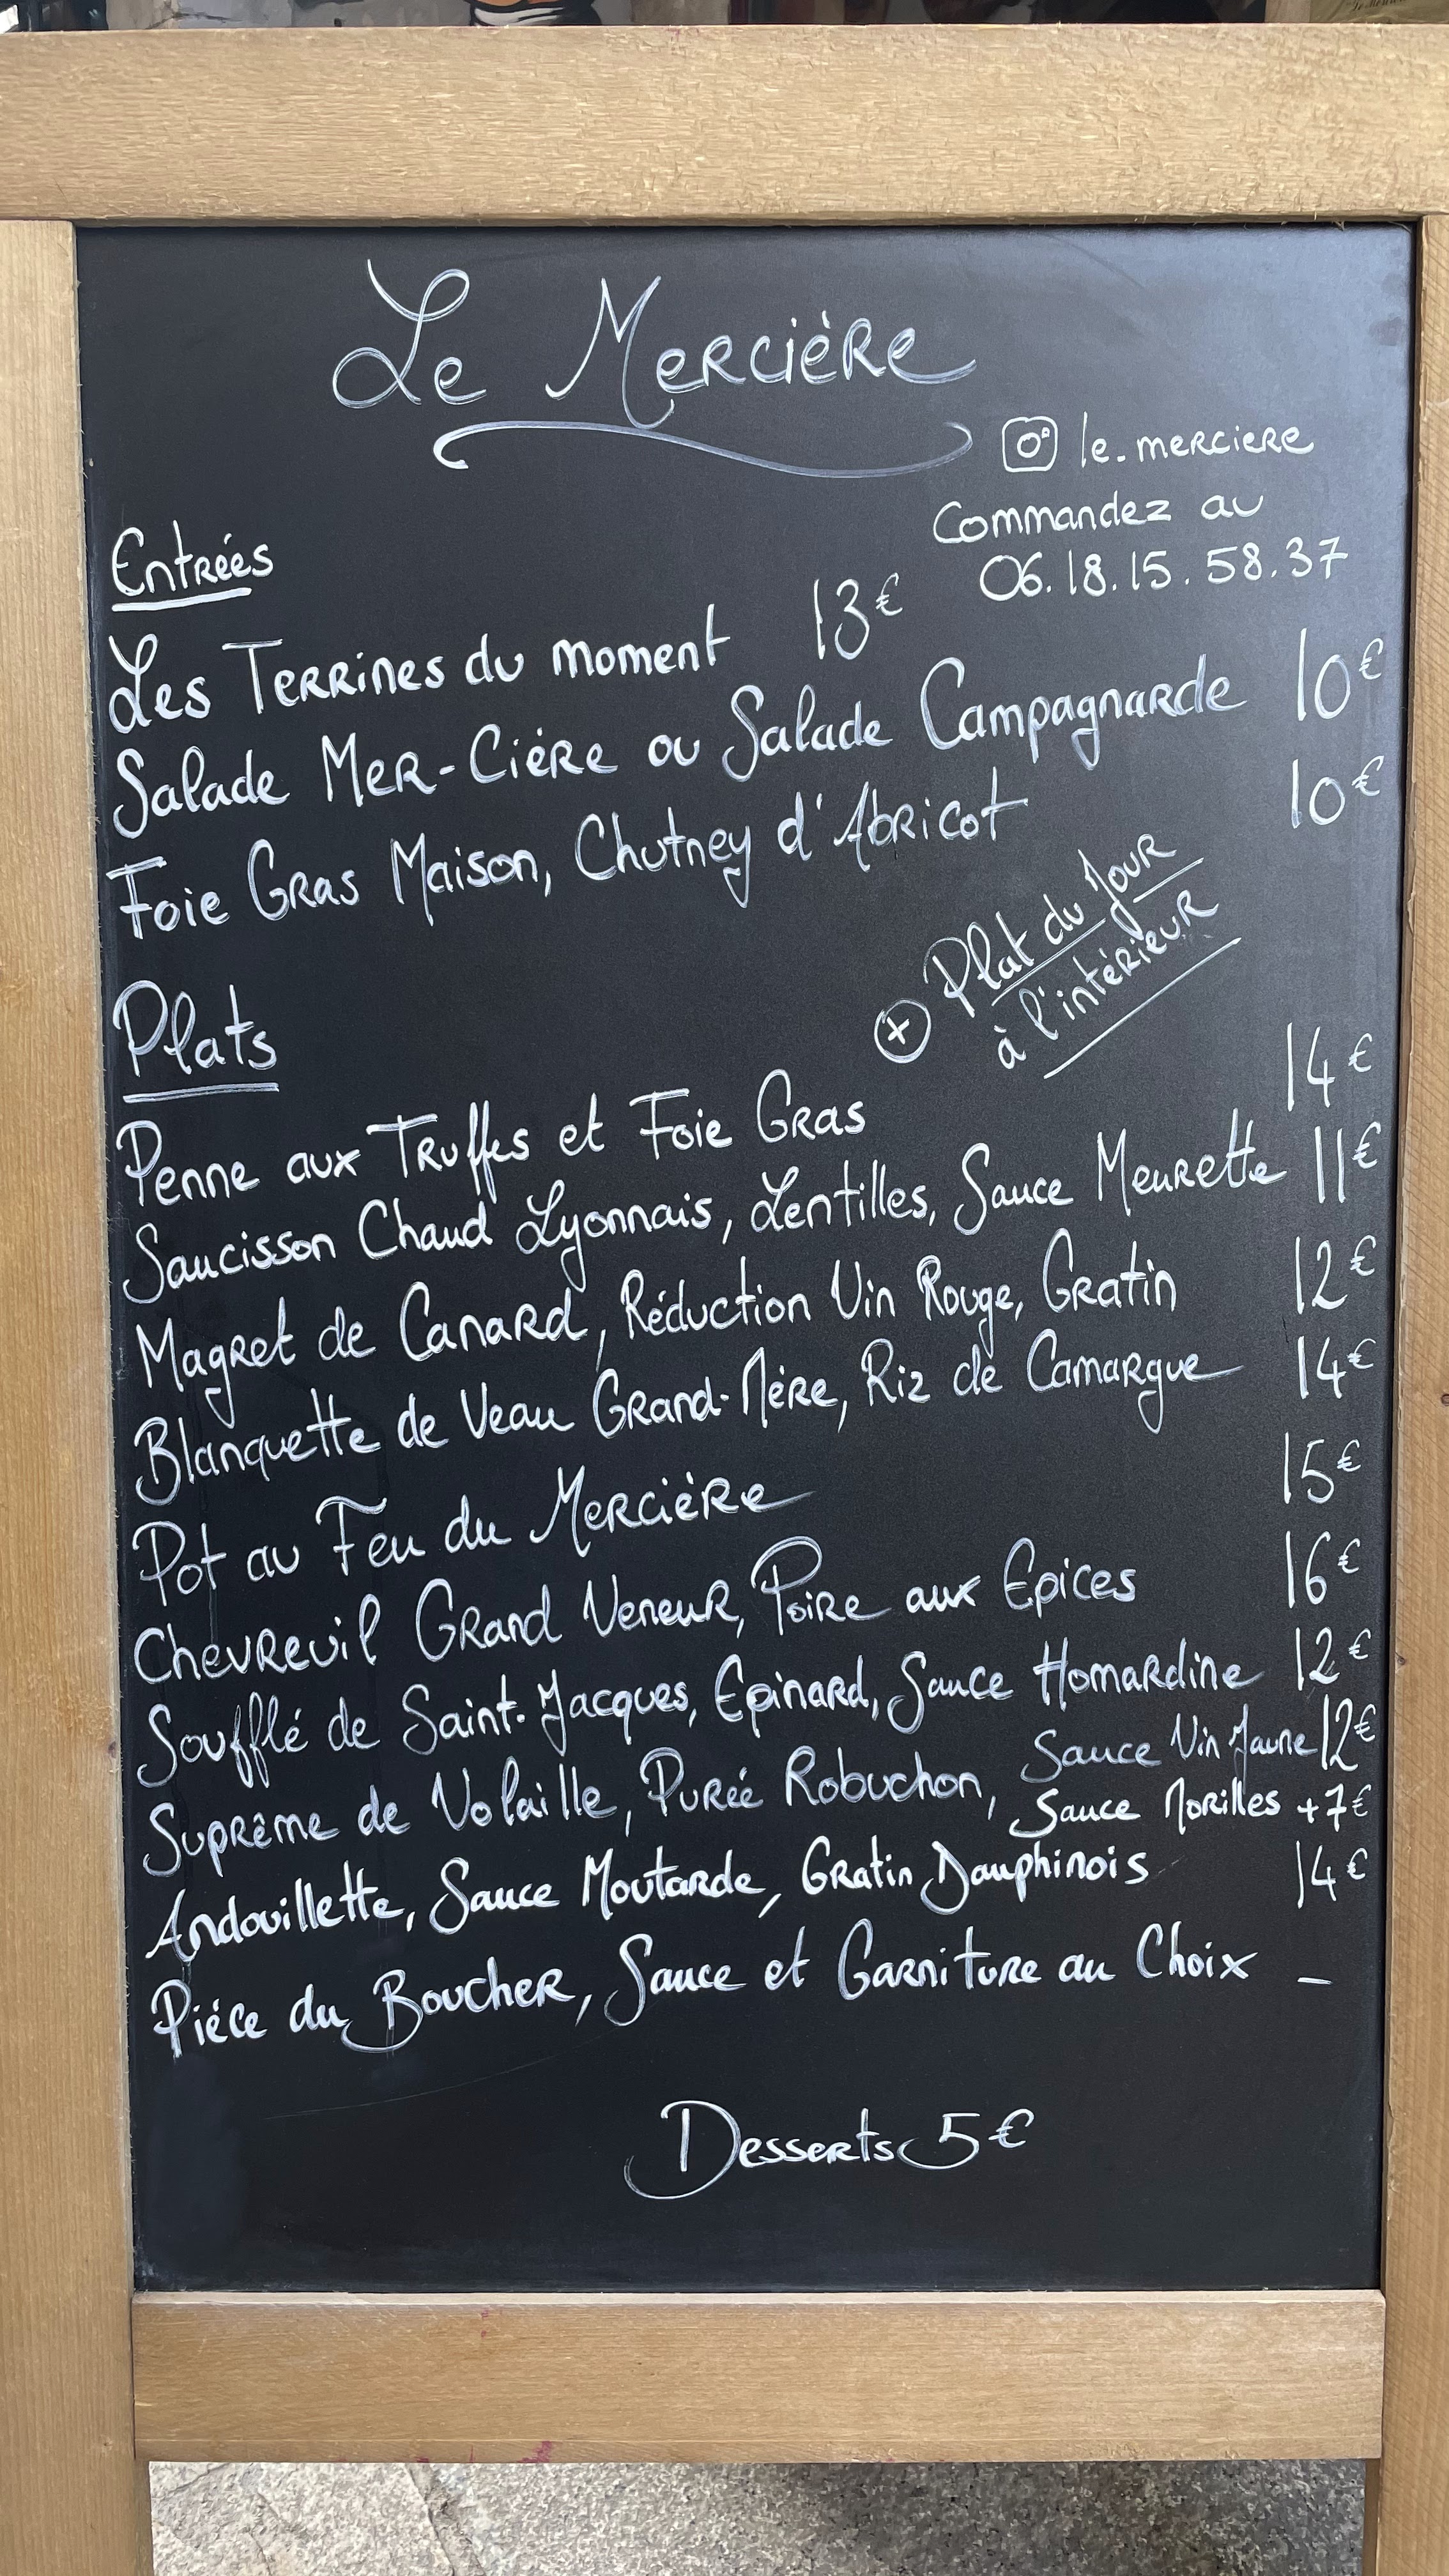 Le Mercière
le.merciere
Commandez au
06.18.15.58.37
Entrées
Les Terrines du moment 13€
Salade Mer-Cière ou Salade Campagnarde 10€
Foie Gras Maison, Chutney d'Abricot 10€
+ Plat du Jour
à l'intérieur
Plats
Penne aux Truffes et Foie Gras 14€
Saucisson Chaud Lyonnais, Lentilles, Sauce Meurette 11€
Magret de Canard, Réduction Vin Rouge, Gratin 12€
Blanquette de Veau Grand-Mère, Riz de Camargue 14€
Pot au Feu du Mercière 15€
Chevreuil Grand Veneur, Poire aux Epices 16€
Soufflé de Saint-Jacques, Epinard, Sauce Homardine 12€
Suprême de Volaille, Purée Robuchon, Sauce Vin Jaune 12€
Sauce Morilles +7€
Andouillette, Sauce Moutarde, Gratin Dauphinois 14€
Piéce du Boucher, Sauce et Garniture au Choix _
Desserts 5€